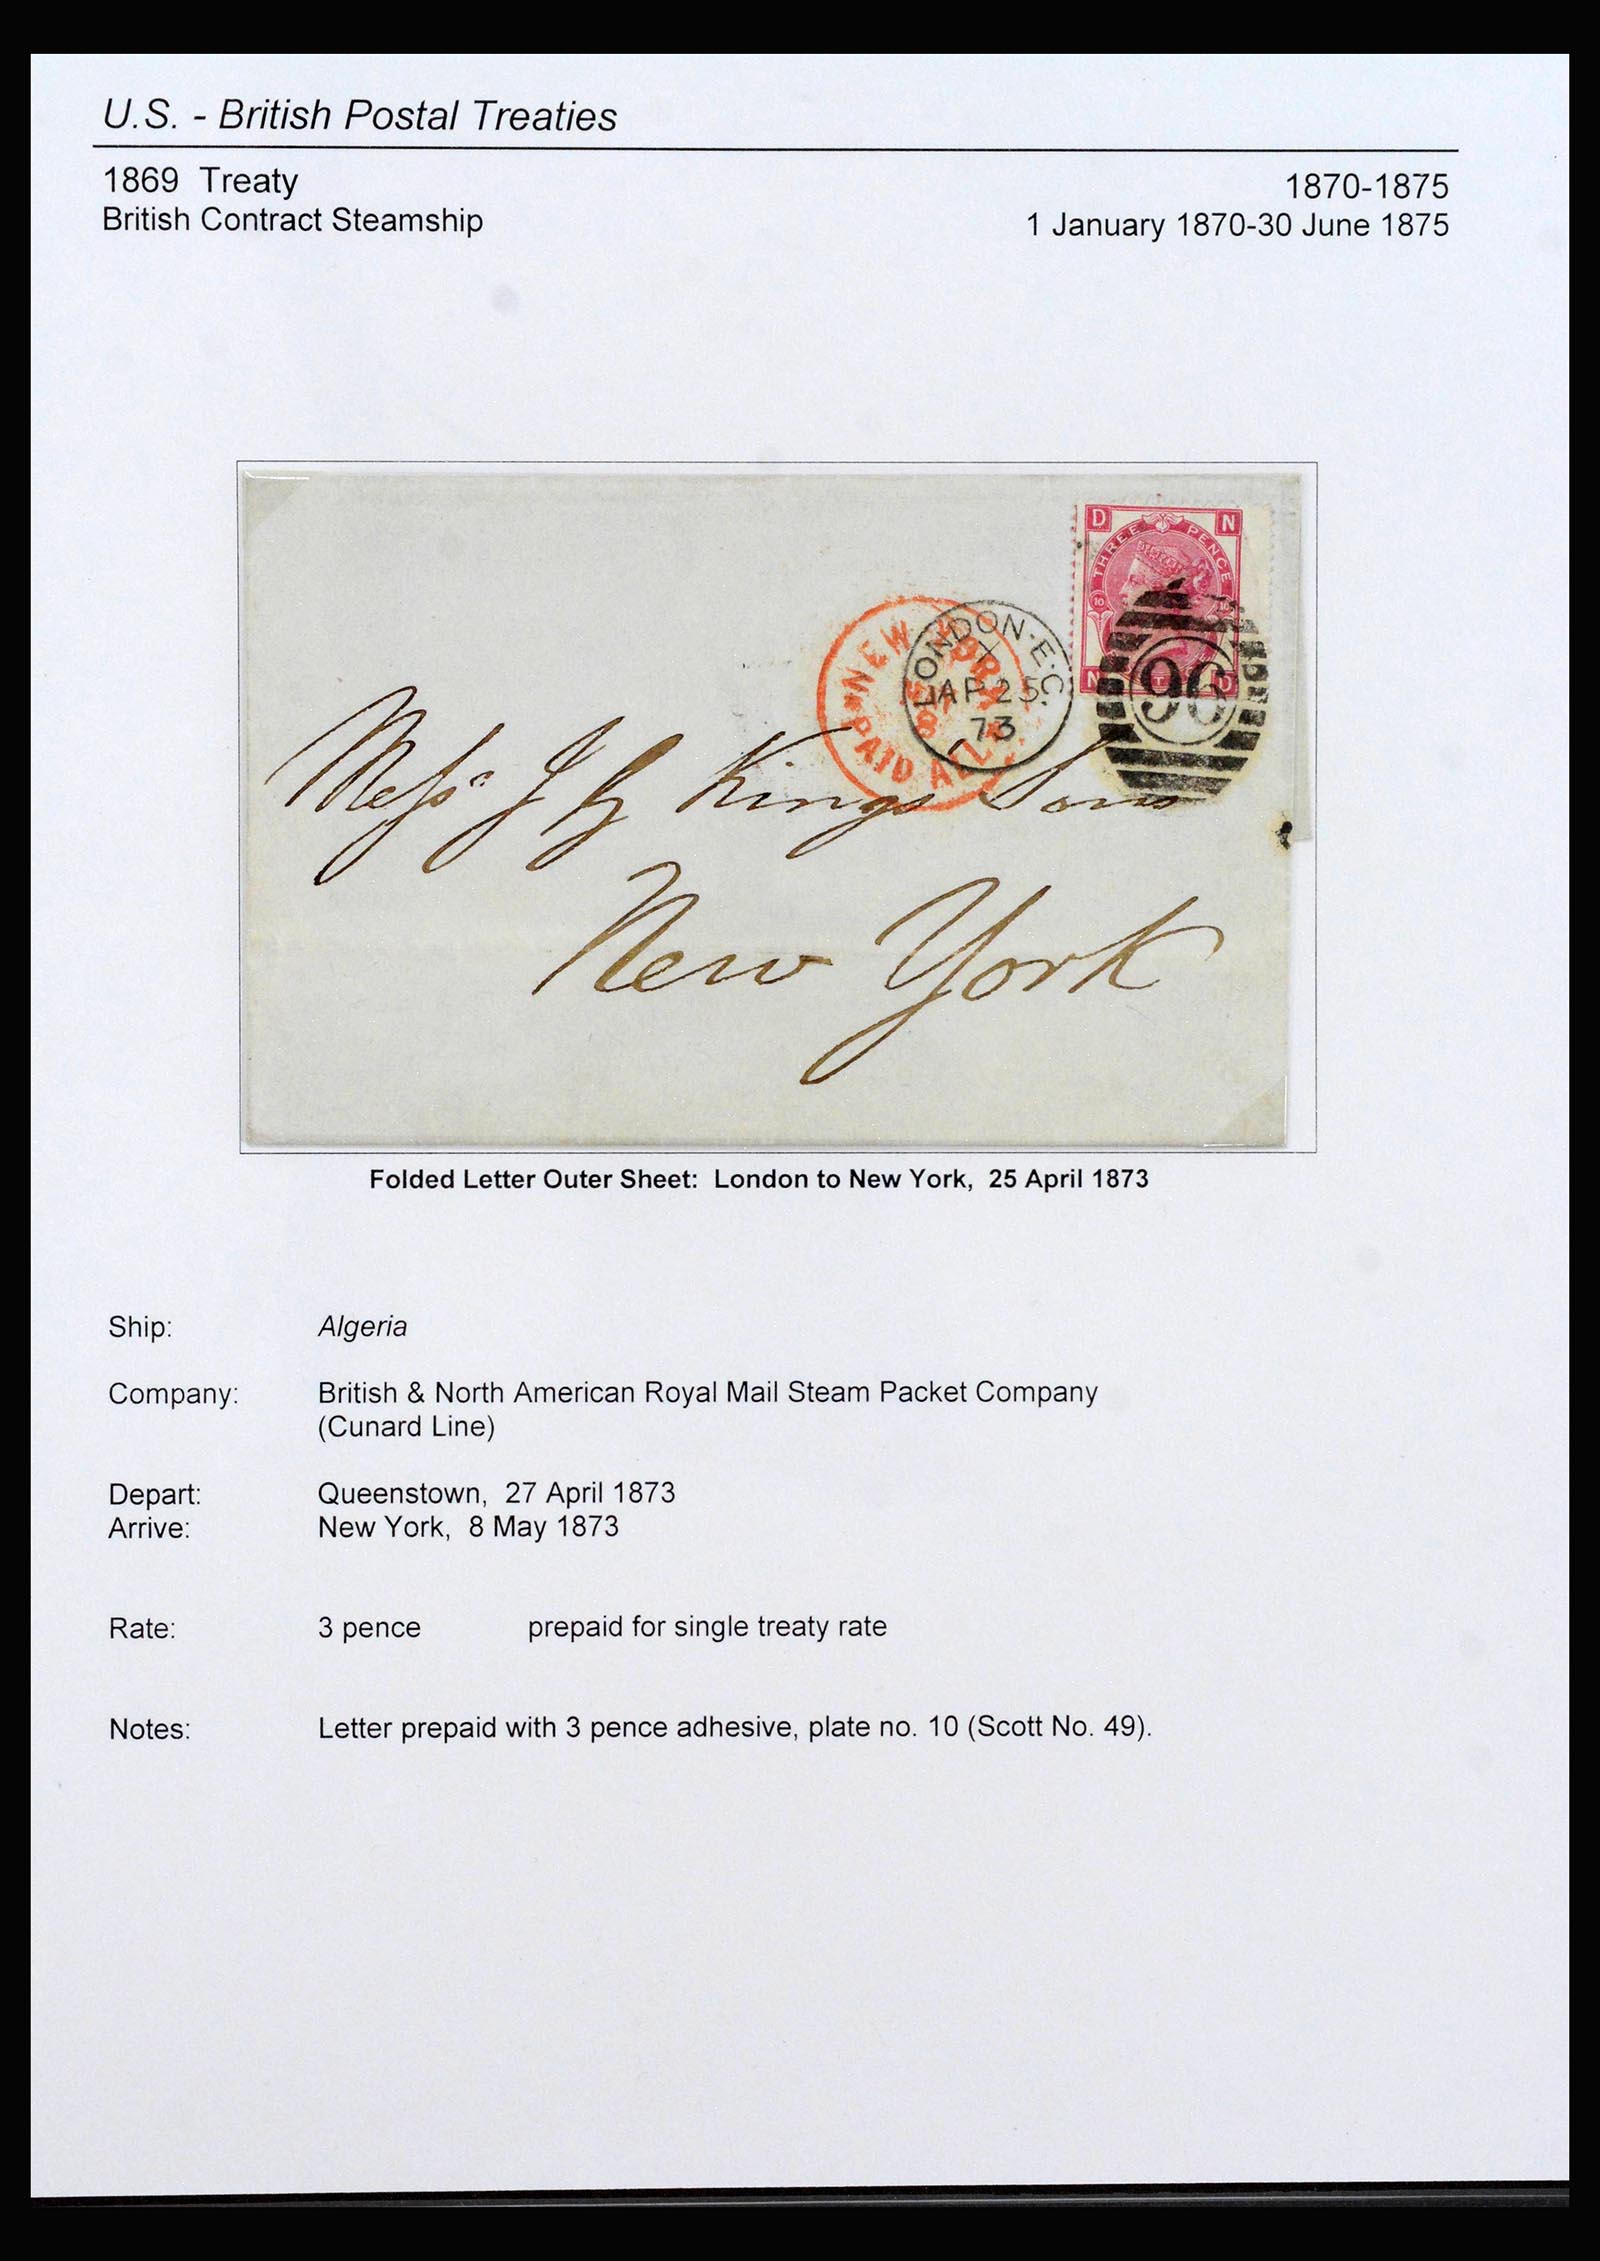 U.S. - British Postal Treaties
1869 Treaty
British Contract Steamship
1870-1875
1 January 1870-30 June 1875
D N
THREE PENCE
10 10
N T D
96
LONDON·E.C.
X
AP 25
73
NEW YORK
PAID ALL
Messrs J G Kings Sons
New York
Folded Letter Outer Sheet: London to New York, 25 April 1873
Ship: Algeria
Company: British & North American Royal Mail Steam Packet Company
(Cunard Line)
Depart: Queenstown, 27 April 1873
Arrive: New York, 8 May 1873
Rate: 3 pence prepaid for single treaty rate
Notes: Letter prepaid with 3 pence adhesive, plate no. 10 (Scott No. 49).